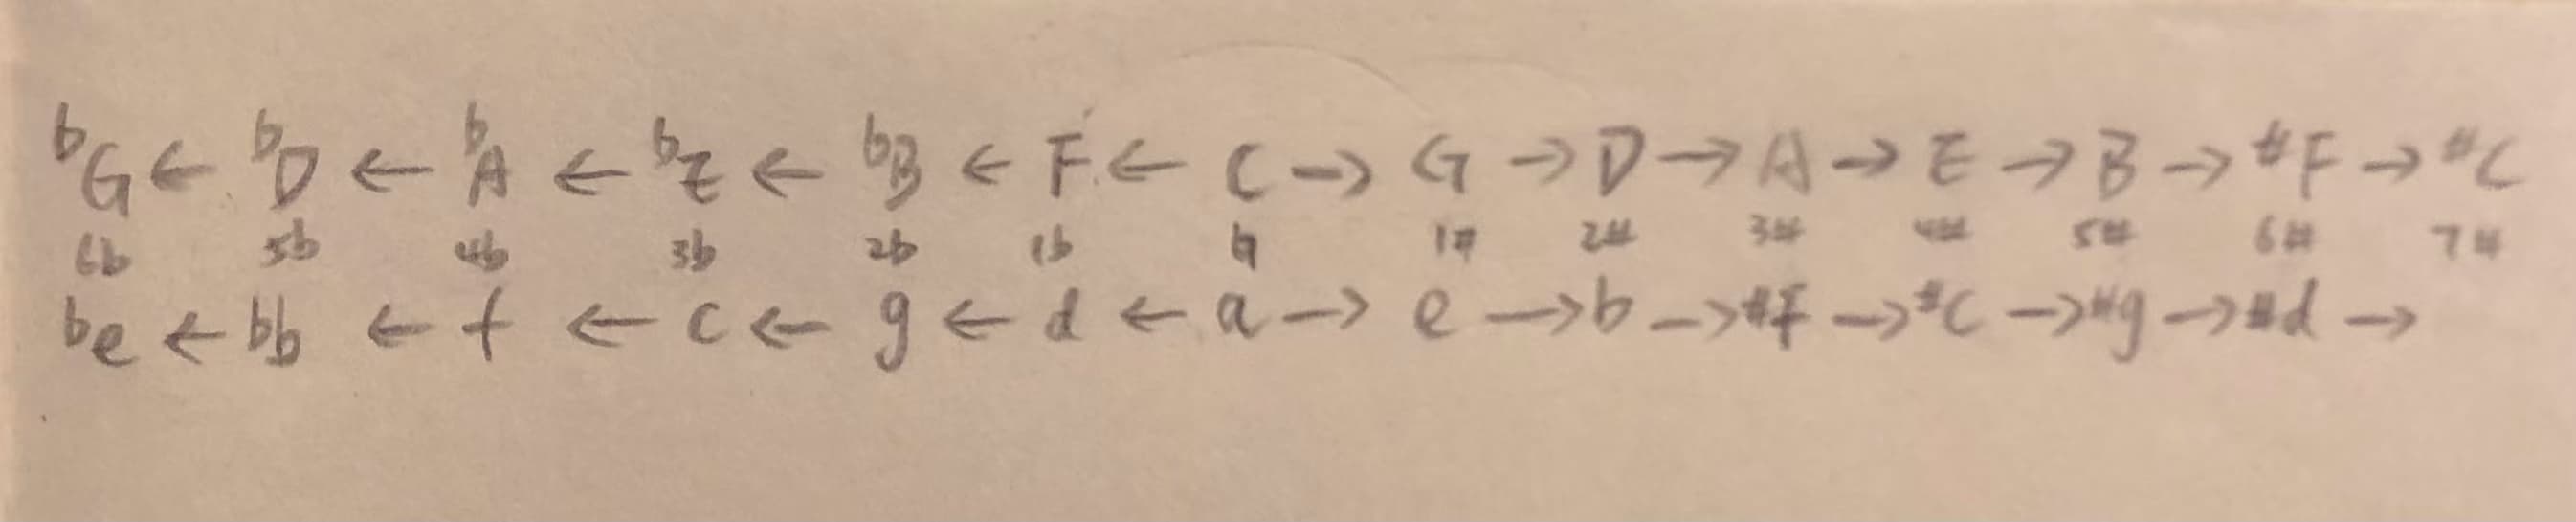 bG ← bD ← bA ← bE ← bB ← F ← C → G → D → A → E → B → #F → #C
6b 5b 4b 3b 2b 1b ♮ 1# 2# 3# 4# 5# 6# 7#
be ← bb ← f ← c ← g ← d ← a → e → b → #f → #c → #g → #d →